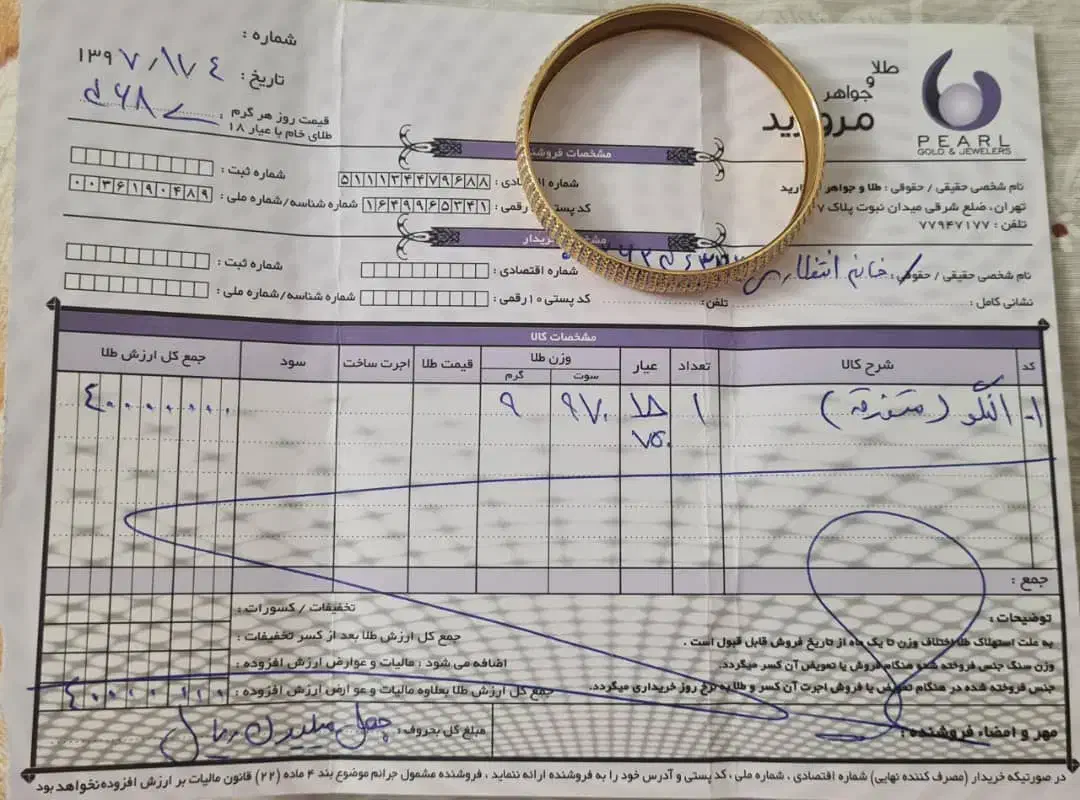 طلا
و
جواهر
مروارید
PEARL
GOLD & JEWELERS
شماره :
تاریخ : ۱۳۹۷/۱۷۴
قیمت روز هر گرم
طلای خام با عیار ۱۸ :
مشخصات فروش
نام شخصی حقیقی / حقوقی : طلا و جواهر
تهران، ضلع شرقی میدان نبوت پلاک ۷
تلفن : ۷۷۹۴۷۱۷۷
شماره اقتصادی : ۵۱۱۱۳۴۴۷۹۶۸۸
شماره ثبت :
کد پستی رقمی : ۱۶۴۹۹۶۵۳۴۱
شماره شناسه/شماره ملی : ۰۰۳۶۱۹۰۴۸۹
خریدار
نام شخصی حقیقی / حقوقی : خانم انتظاری
شماره اقتصادی :
شماره ثبت :
نشانی کامل :
تلفن :
کد پستی ۱۰ رقمی :
شماره شناسه/شماره ملی :
مشخصات کالا
کد
شرح کالا
تعداد
عیار
وزن طلا
سوت
گرم
قیمت طلا
اجرت ساخت
سود
جمع کل ارزش طلا
۱- النگو (متفرقه) ۱ ۱۸ ۹۷۰ ۹ ۴۰۰۰۰۰۰۰
۷۵۰
جمع :
توضیحات :
به علت استهلاک طلا اختلاف وزن تا یک ماه از تاریخ فروش قابل قبول است .
وزن سنگ جنس فروخته شده هنگام فروش یا تعویض آن کسر میگردد.
جنس فروخته شده در هنگام تعویض یا فروش اجرت آن کسر و طلا به نرخ روز خریداری میگردد.
تخفیفات / کسورات :
جمع کل ارزش طلا بعد از کسر تخفیفات :
اضافه می شود : مالیات و عوارض ارزش افزوده :
جمع کل ارزش طلا بعلاوه مالیات و عوارض ارزش افزوده : ۴۰۰۰۰۰۰۰
مهر و امضاء فروشنده :
مبلغ کل بحروف : چهل میلیون ریال
در صورتیکه خریدار (مصرف کننده نهایی) شماره اقتصادی . شماره ملی ، کد پستی و آدرس خود را به فروشنده ارائه ننماید ، فروشنده مشمول جرائم موضوع بند ۴ ماده (۲۲) قانون مالیات بر ارزش افزوده نخواهد بود